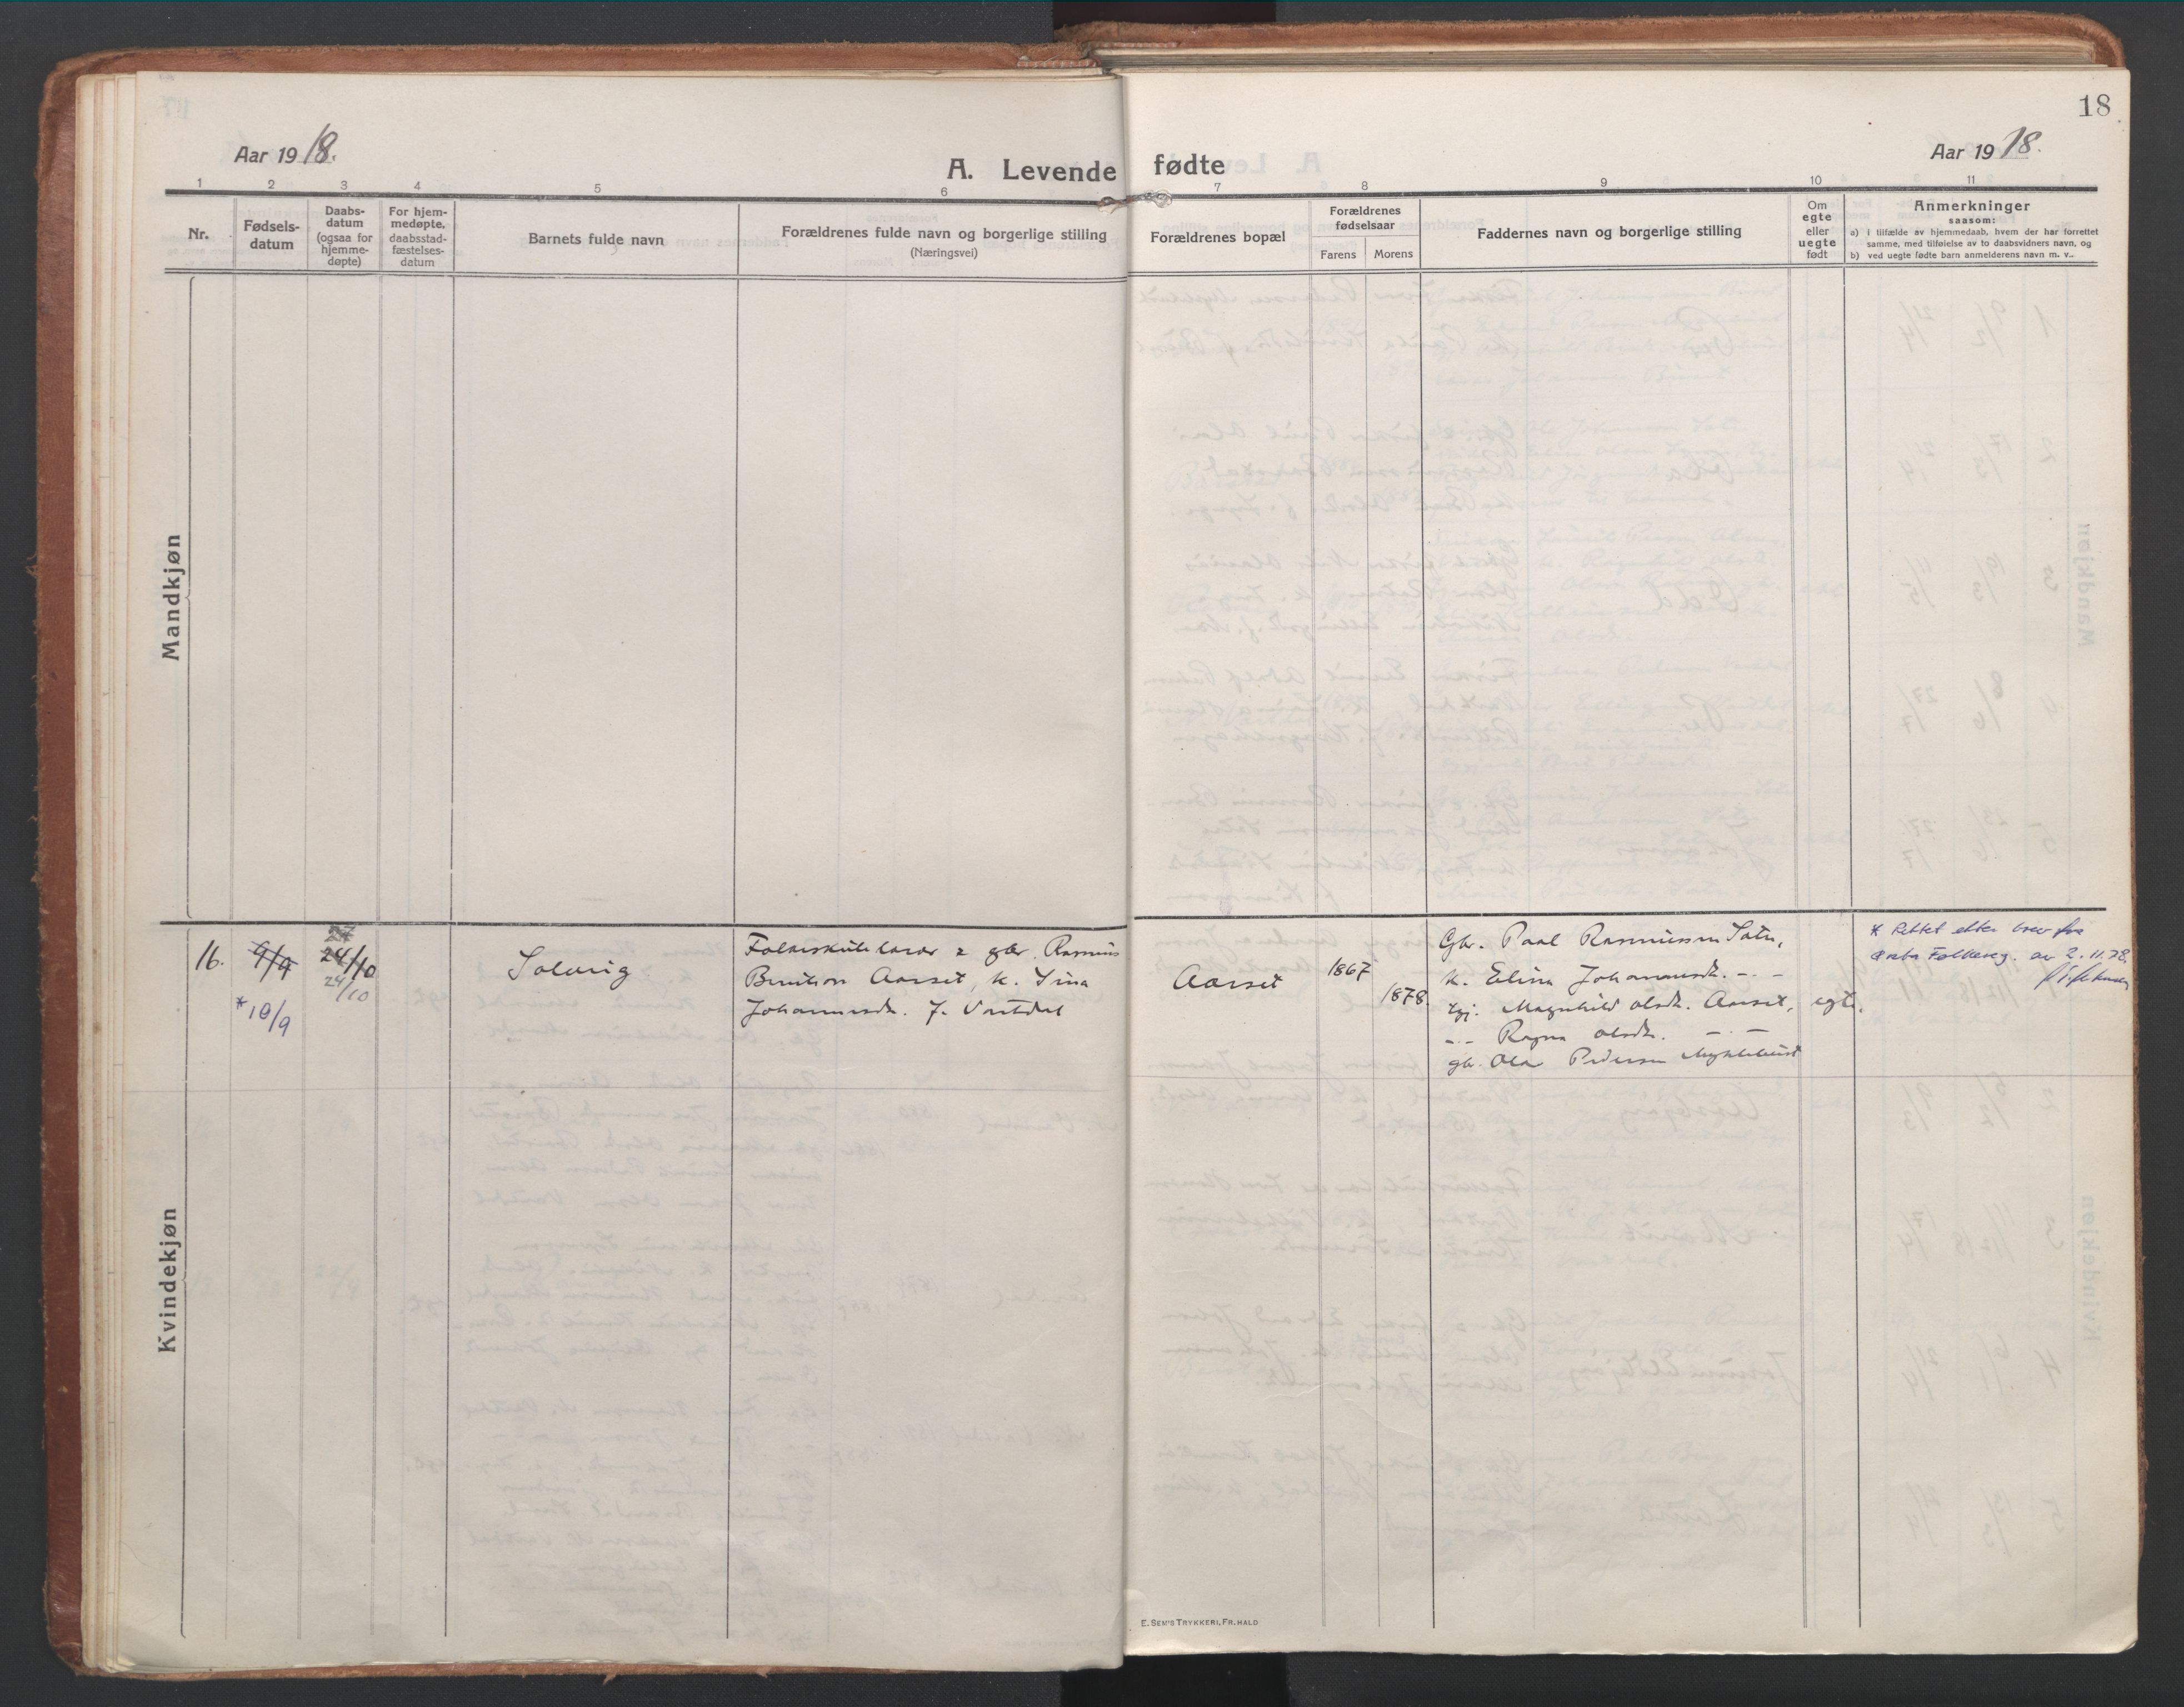 18
Aar 1918.
Aar 1918.
A. Levende fødte
1 2 3 4 5 6 7 8 9 10 11
Nr.
Fødsels-
datum
Daabs-
datum
(ogsaa for
hjemme-
døpte)
For hjem-
medøpte,
daabsstad-
fæstelses-
datum
Barnets fulde navn
Forældrenes fulde navn og borgerlige stilling
(Næringsvei)
Forældrenes bopæl
Forældrenes
fødselsaar
Farens
Morens
Faddernes navn og borgerlige stilling
Om
egte
eller
uegte
født
Anmerkninger
saasom:
a) i tilfælde av hjemmedaab, hvem der har forrettet
samme, med tilføielse av to daabsvidners navn, og
b) ved uegte fødte barn anmelderens navn m. v..
Mandkjøn
Kvindekjøn
16.
9/9
* 10/9
24/10
24/10
Solveig
Folkeskulelærar & gbr. Rasmus
Aarset, k. Sina
Johannesdr. f. Vartdal
Aarset
1867
1878
Gbr. Paal Rasmussen Sætre,
k. Elina Johannesdr. -.-
tpj. Magnhild Olsdr. Aarset,
-.- Ragna Olsdr. -.-
gbr. Ola Pedersen Myklebust
egte.
* Rettet etter brev fra
Ørsta Folkereg. av 2.11.78.
E. SEM'S TRYKKERI, FR. HALD